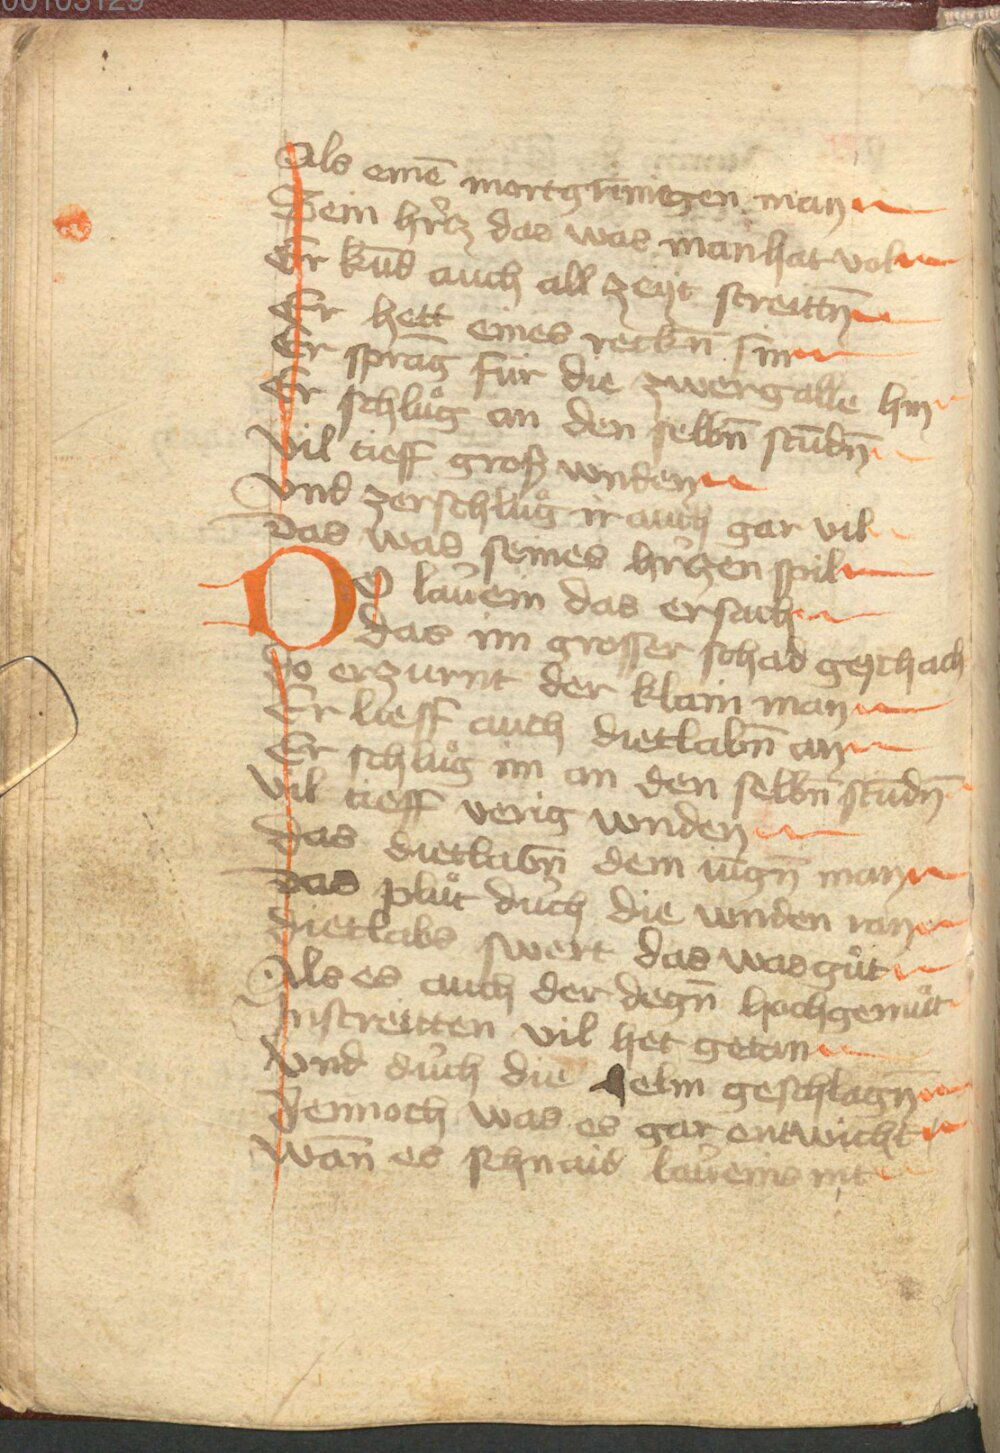 00103129
Als eine͂ mortgri͂migen man
Sein hrͤcz das was manhat vol
Er ku͂d auch all zeyt streittn̄
Er hett eines reckn̄ sin
Er sprang für die zwerg alle hin
Er schluͦg an den selbn̄ stu͂dn̄
Vil tieff groß wnden
Vnd zerschluͦg ir auch gar vil
Das was seines hrͤczen spil
DO laurein das ersach
das im grosser schad geschach
do erzurnt der klain man
Er lieff auch dietlabn̄ an
Er schluͦg im an den selbn̄ stu͂dn̄
Vil tieff verig wnden
das dietlabn̄ dem iu͂gn̄ man
Das pluͦt durch die wnden ran
dietlabs swert das was guͦt
Als es auch der degn̄ hochgemuͦt
In streitten vil het getan
Vnd durch die helm geschlagn̄
Dennoch was es gar entwicht
Wan̄ es schnaid laureins nit